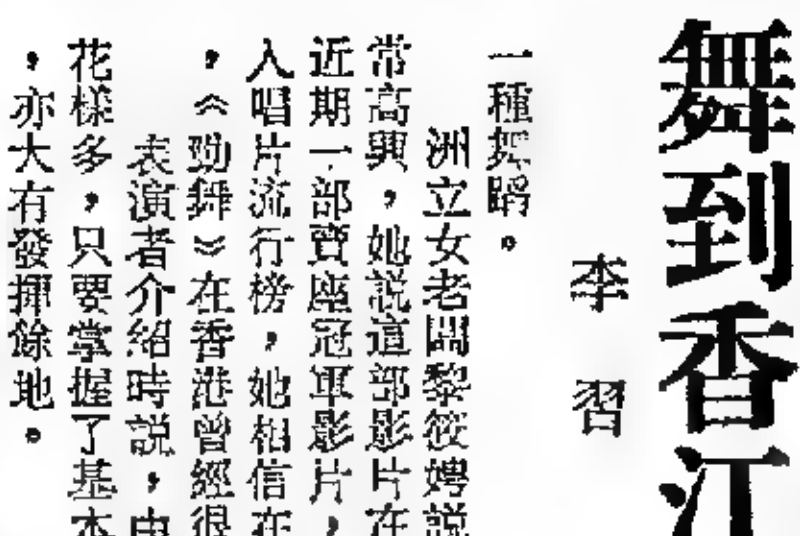 舞到香江
李習
一種舞蹈。
洲立女老闆黎筱娉説
常高興，她説這部影片在
近期一部賣座冠軍影片，
入唱片流行榜，她相信在
，《勁舞》在香港曾經很
表演者介紹時説，由
花樣多，只要掌握了基本
，亦大有發揮餘地。